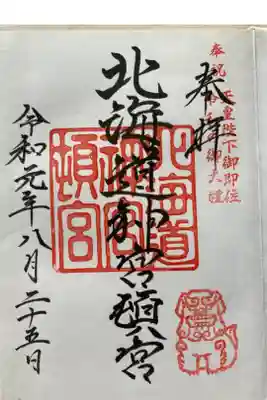 奉祝 天皇陛下御即位
令和御大禮
奉拝
北海道神宮頓宮
北海道
神宮
頓宮
令和元年八月二十五日